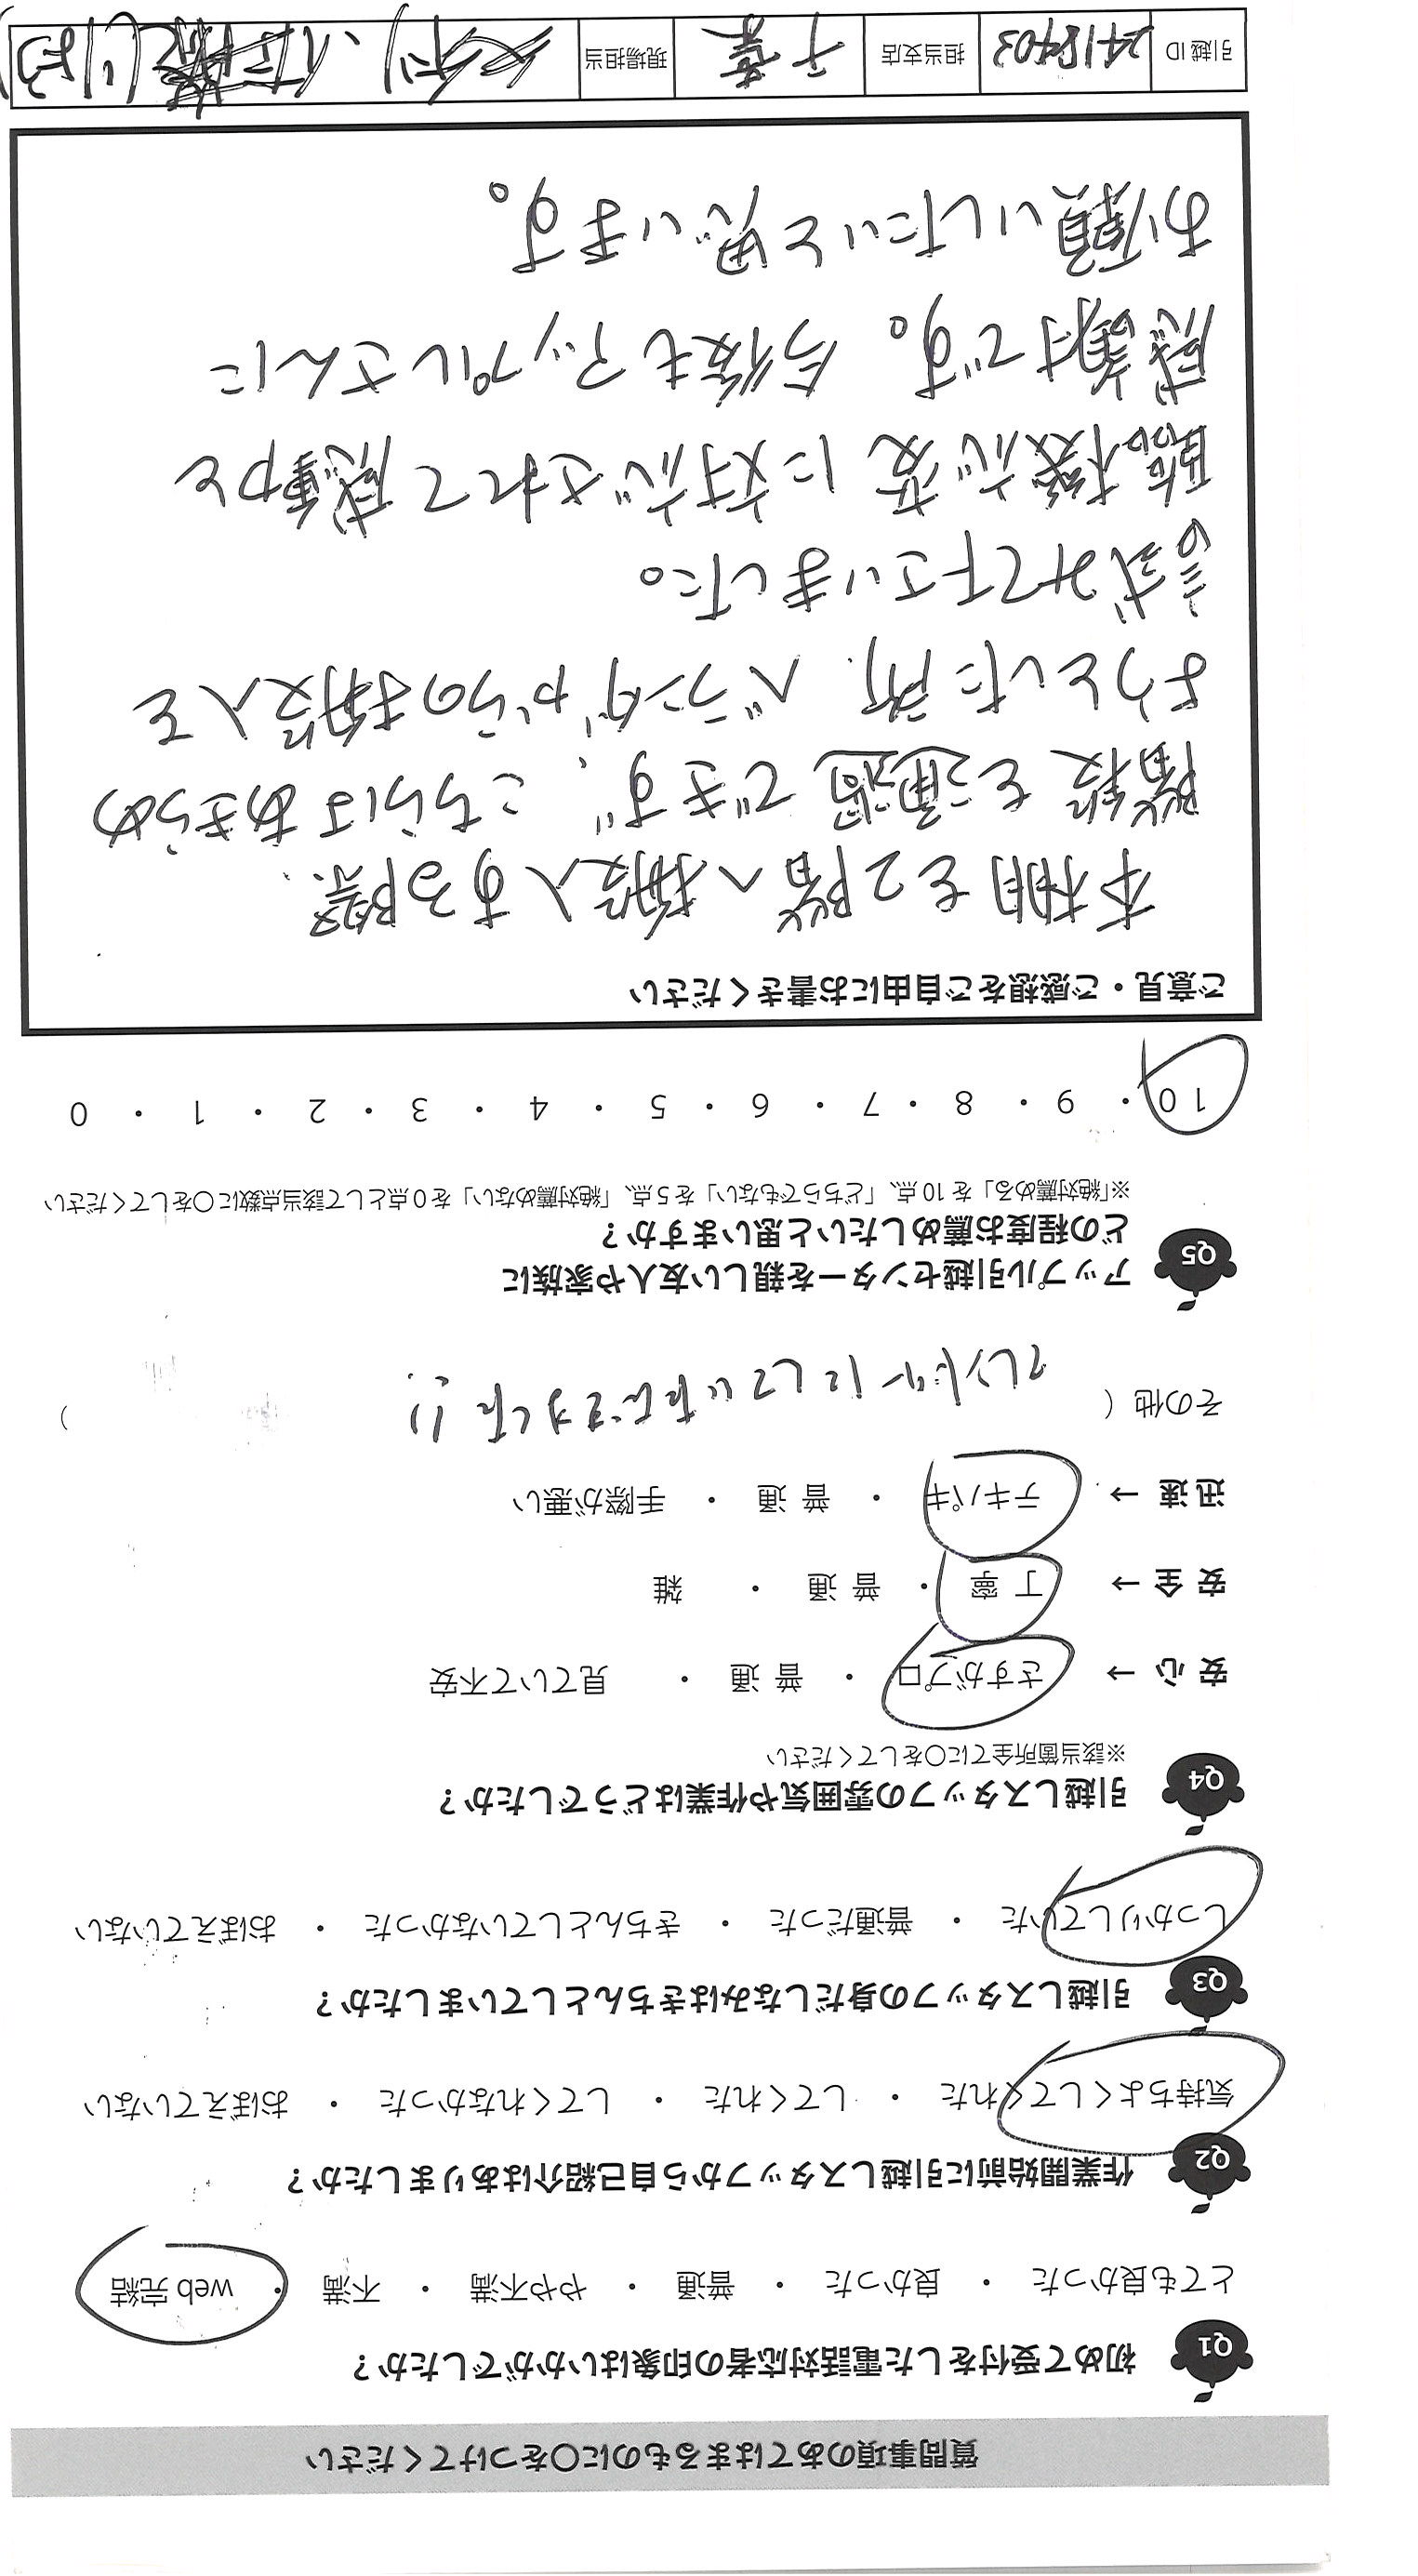 質問事項のあてはまるものに〇をつけてください
Q1 初めて受付をした電話対応者の印象はいかがでしたか？
とても良かった ・ 良かった ・ 普通 ・ やや不満 ・ 不満 ・ web 完結
Q2 作業開始前に引越しスタッフから自己紹介はありましたか？
気持ちよくしてくれた ・ してくれた ・ してくれなかった ・ おぼえていない
Q3 引越しスタッフの身だしなみはきちんとしていましたか？
しっかりしていた ・ 普通だった ・ きちんとしていなかった ・ おぼえていない
Q4 引越しスタッフの雰囲気や作業はどうでしたか？
※該当箇所全てに〇をしてください
安 心 → さすがプロ ・ 普 通 ・ 見ていて不安
安 全 → 丁 寧 ・ 普 通 ・ 雑
迅 速 → テキパキ ・ 普 通 ・ 手際が悪い
その他 ( フレンドリーにしていただきました!! )
Q5 アップル引越センターを親しい友人や家族に
どの程度お薦めしたいと思いますか？
※「絶対薦める」を 10 点、「どちらでもない」を 5 点、「絶対薦めない」を 0 点として該当点数に〇をしてください
10 ・ 9 ・ 8 ・ 7 ・ 6 ・ 5 ・ 4 ・ 3 ・ 2 ・ 1 ・ 0
ご意見・ご感想をご自由にお書きください
本棚を2階へ搬入する際、
階段を通過できず、こちらはあきらめ
ようとした所、ベランダからの搬入を
試みて下さいました。
臨機応変に対応されて感動と
感謝です。今後もアップルさんに
お願いしたいと思います。
引越 ID 2418403 担当支店 千葉 現場担当